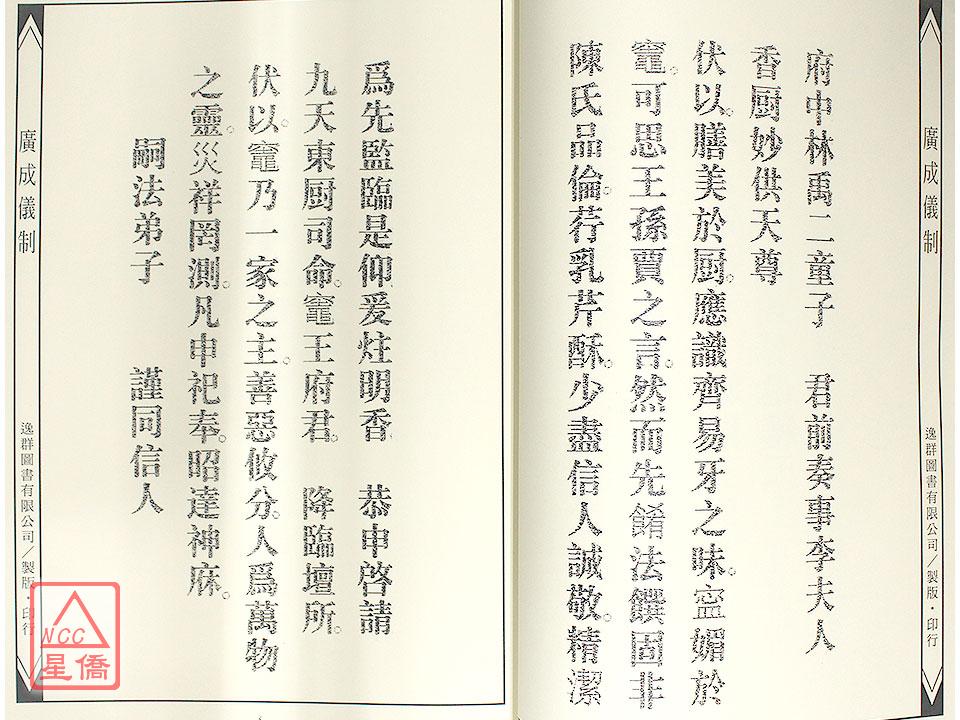 廣成儀制
逸群圖書有限公司／製版・印行
府中林禹二童子　君前奏事李夫人
香厨妙供天尊
伏以。膳美於厨。應讖齊易牙之味。寍媚於
竈。可思王孫賈之言。然而先餚法饌。固非
陳氏品倫。荐乳芹酥。少盡信人誠敬。精潔
爲先監臨是仰爰炷明香　恭申啓請
九天東厨司命。竈王府君。　降臨壇所。
伏以。竈乃一家之主。善惡攸分。人爲萬物
之靈。災祥罔測。凡申祀奉。昭達神庥。
嗣法弟子　　謹同信人
廣成儀制
逸群圖書有限公司／製版・印行
NCC
星僑